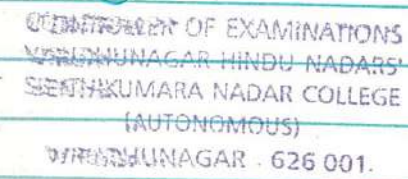 CONTROLLER OF EXAMINATIONS
VIRUDHUNAGAR HINDU NADARS'
SENTHIKUMARA NADAR COLLEGE
(AUTONOMOUS)
VIRUDHUNAGAR - 626 001.